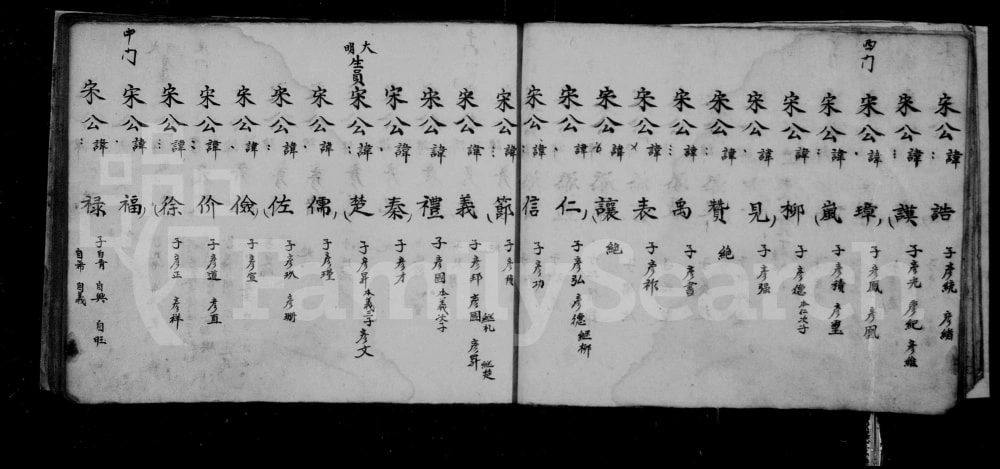 西门
宋公諱誥 子彥統 彥緒
宋公諱謨 子彥光 彥紀 彥維
宋公諱璋 子彥鳳 彥凰
宋公諱嵐 子彥積 彥豐
宋公諱柳 子彥德 本仁次子
宋公諱見 子彥強
宋公諱贊 絶
宋公諱禹 子彥書
宋公諱表 子彥祁
宋公諱讓 絶
宋公諱仁 子彥弘 彥德 継柳
宋公諱信 子彥功
宋公諱節 子彥
宋公諱義 子彥邦 彥國 継礼 彥昇 継楚
宋公諱禮 子彥國 本義次子
宋公諱秦 子彥才
大明生員宋公諱楚 子彥昇 本義三子 彥文
宋公諱儒 子彥瑾
宋公諱佐 子彥玖 彥珊
宋公諱儉 子彥宣
宋公諱价 子彥道 彥直
宋公諱徐 子彥正 彥祥
宋公諱福
中门
宋公諱禄 子自青 自興 自旺 自希 自義
FamilySearch